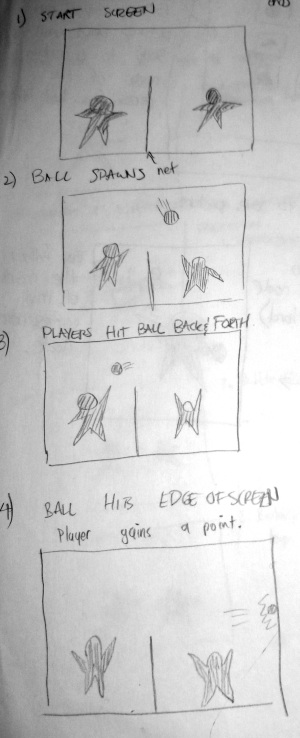 1) START SCREEN
2) BALL SPAWNS net
3) PLAYERS HIT BALL BACK & FORTH.
4) BALL HITS EDGE OF SCREEN
Player gains a point.